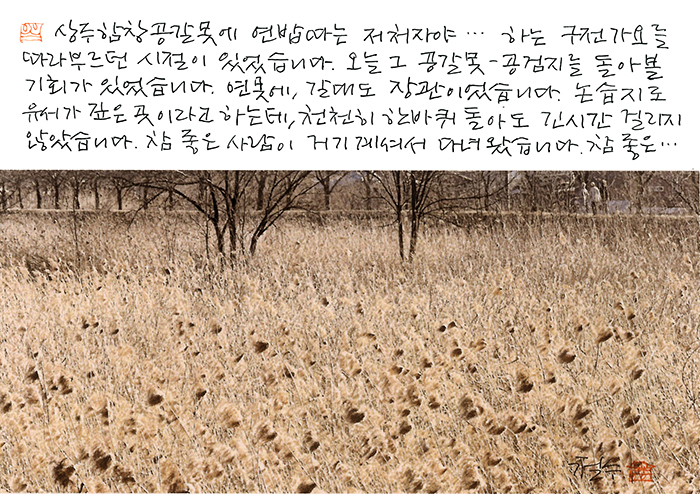 상주함창공갈못에 연밥따는 저처자야 ··· 하는 구전가요를
따라부르던 시절이 있었습니다. 오늘 그 공갈못-공검지를 돌아볼
기회가 있었습니다. 연못에, 갈대도 장관이었습니다. 논습지로
유서가 깊은 곳이라고 하는데, 천천히 한바퀴 돌아도 긴시간 걸리지
않았습니다. 참 좋은 사람이 거기계셔서 다녀왔습니다. 참 좋은···